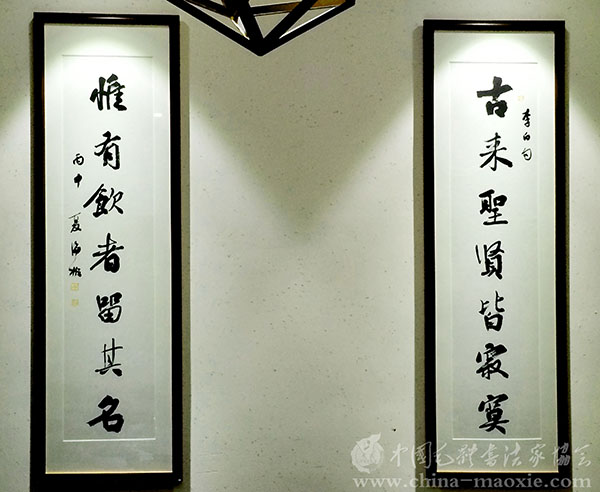 古来聖賢皆寂寞
李白句
惟有飲者留其名
丙申
夏
中国毛體书法家協会
www.china-maoxie.com